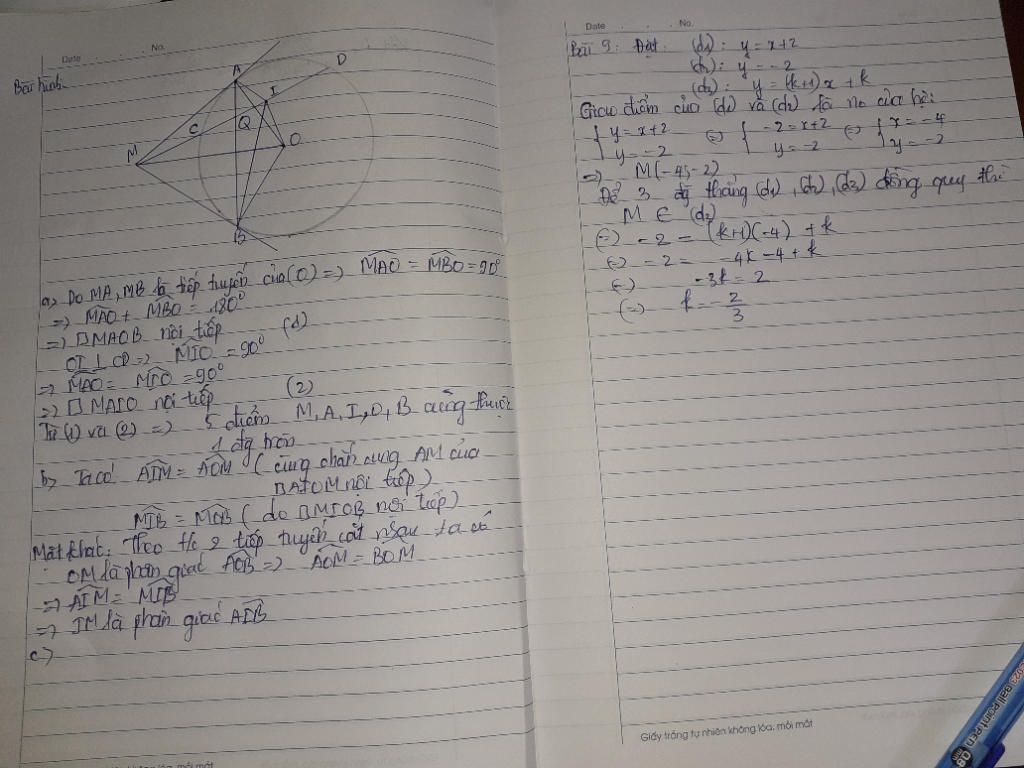 Date No.
Bài hình.
A
D
I
Q
C
M
O
B
a, Do MA, MB là tiếp tuyến của (O) => MAO = MBO = 90°
=> MAO + MBO = 180°
=> □MAOB nội tiếp (1)
OI ⊥ CD => MIO = 90°
=> MAO = MIO = 90°
=> □ MAIO nội tiếp (2)
Từ (1) và (2) => 5 điểm M, A, I, O, B cùng thuộc
1 đg tròn
b, Ta có: AIM = AOM ( cùng chắn cung AM của
□AIOM nội tiếp )
MIB = MOB ( do □MIOB nội tiếp )
Mặt khác: Theo t/c 2 tiếp tuyến cắt nhau ta có
OM là phân giác AOB => AOM = BOM
=> AIM = MIB
=> IM là phân giác AIB
c,
Date No.
Bài 9: Đặt (d1): y = x+2
(d2): y = -2
(d3): y = (k+1)x + k
Giao điểm của (d1) và (d2) là no của hệ:
{ y = x+2 (=) { -2 = x+2 (=) { x = -4
y = -2 y = -2 y = -2
=) M(-4;-2)
Để 3 đg thẳng (d1), (d2), (d3) đồng quy thì
M ∈ (d3)
(=) -2 = (k+1)(-4) + k
(=) -2 = -4k - 4 + k
(=) -3k = 2
(=) k = -2/3
Giấy trắng tự nhiên không lóa, mỏi mắt
Ball Point PEN